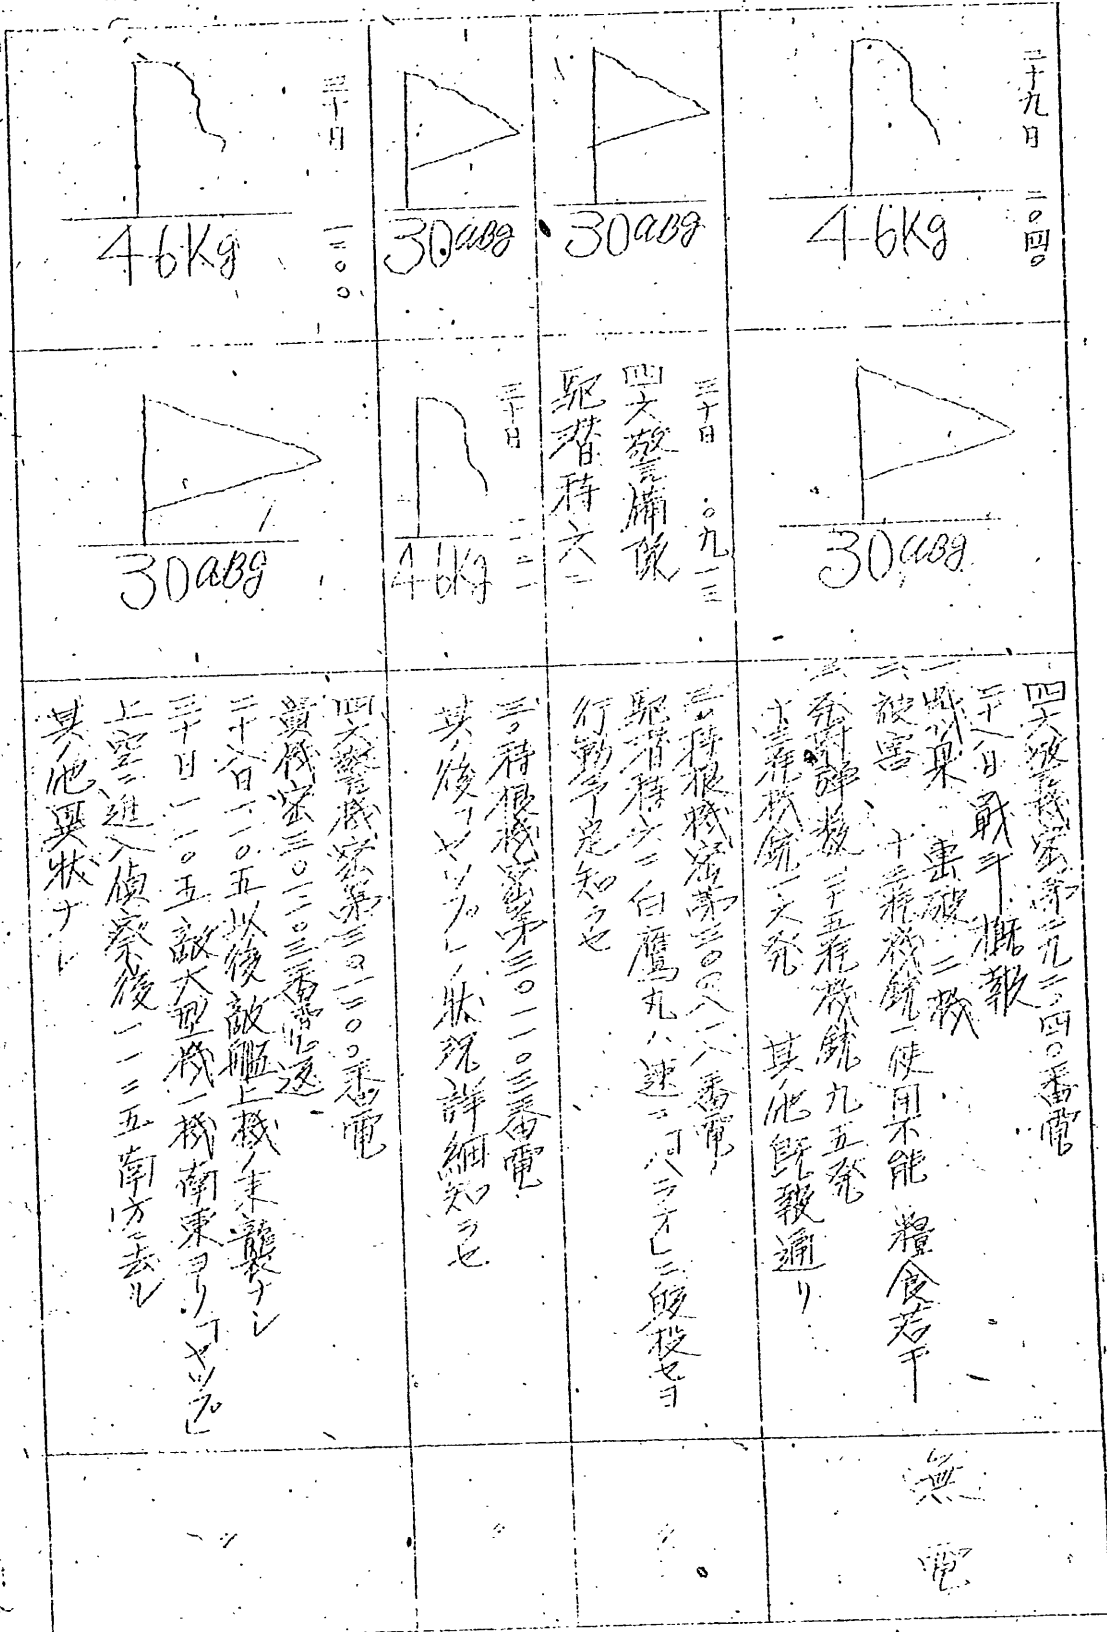 二十九日 二〇四〇
46Kg
30aBg
四六警機密第二九二〇四〇番電
二十八日戦斗概報
一、戦果 重破二機
二、被害 十三粍機銃一使用不能 糧食若干
三、発射弾数 二十五粍機銃九五発
十三粍機銃一六発 其ノ他既報通リ
無電
30aBg
三十日 〇九一三
四六警備隊
駆潜特六二
三〇特根機密第三〇〇八一八番電
駆潜特六二白鷹丸ハ速ニ「パラオ」ニ回投セヨ
行動予定知ラセ
〃
30aBg
三十日 一一二一
46Kg
三〇特根機密第三〇一一〇三番電
其ノ後「ヤップ」ノ状況詳細知ラセ
〃
三十日 一二〇〇
46Kg
30aBg
四六警機密第三〇一二〇〇番電
貴機密三〇一一〇三番電返
二十八日一一〇五以後敵艦上機ノ来襲ナシ
三十日一一〇五敵大型機一機南東ヨリ「ヤップ」
上空ニ進入偵察後一一二五南方ニ去ル
其ノ他異状ナシ
〃